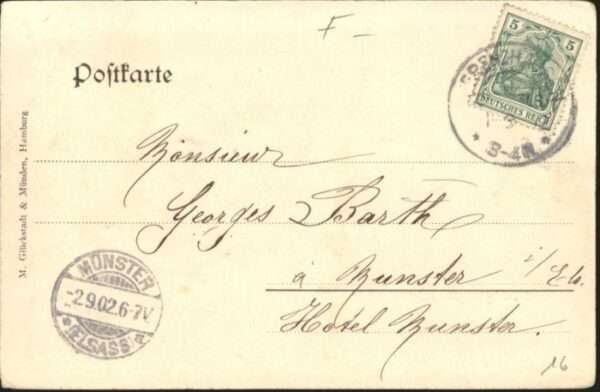 F –
5 5
DEUTSCHES REICH
Postkarte
* 3-4N *
M. Glückstadt & Münden, Hamburg
Monsieur
Georges Barth
à Munster i/Els.
Hotel Munster.
MÜNSTER
-2.9.02.6-7V
* (ELSASS) *
16